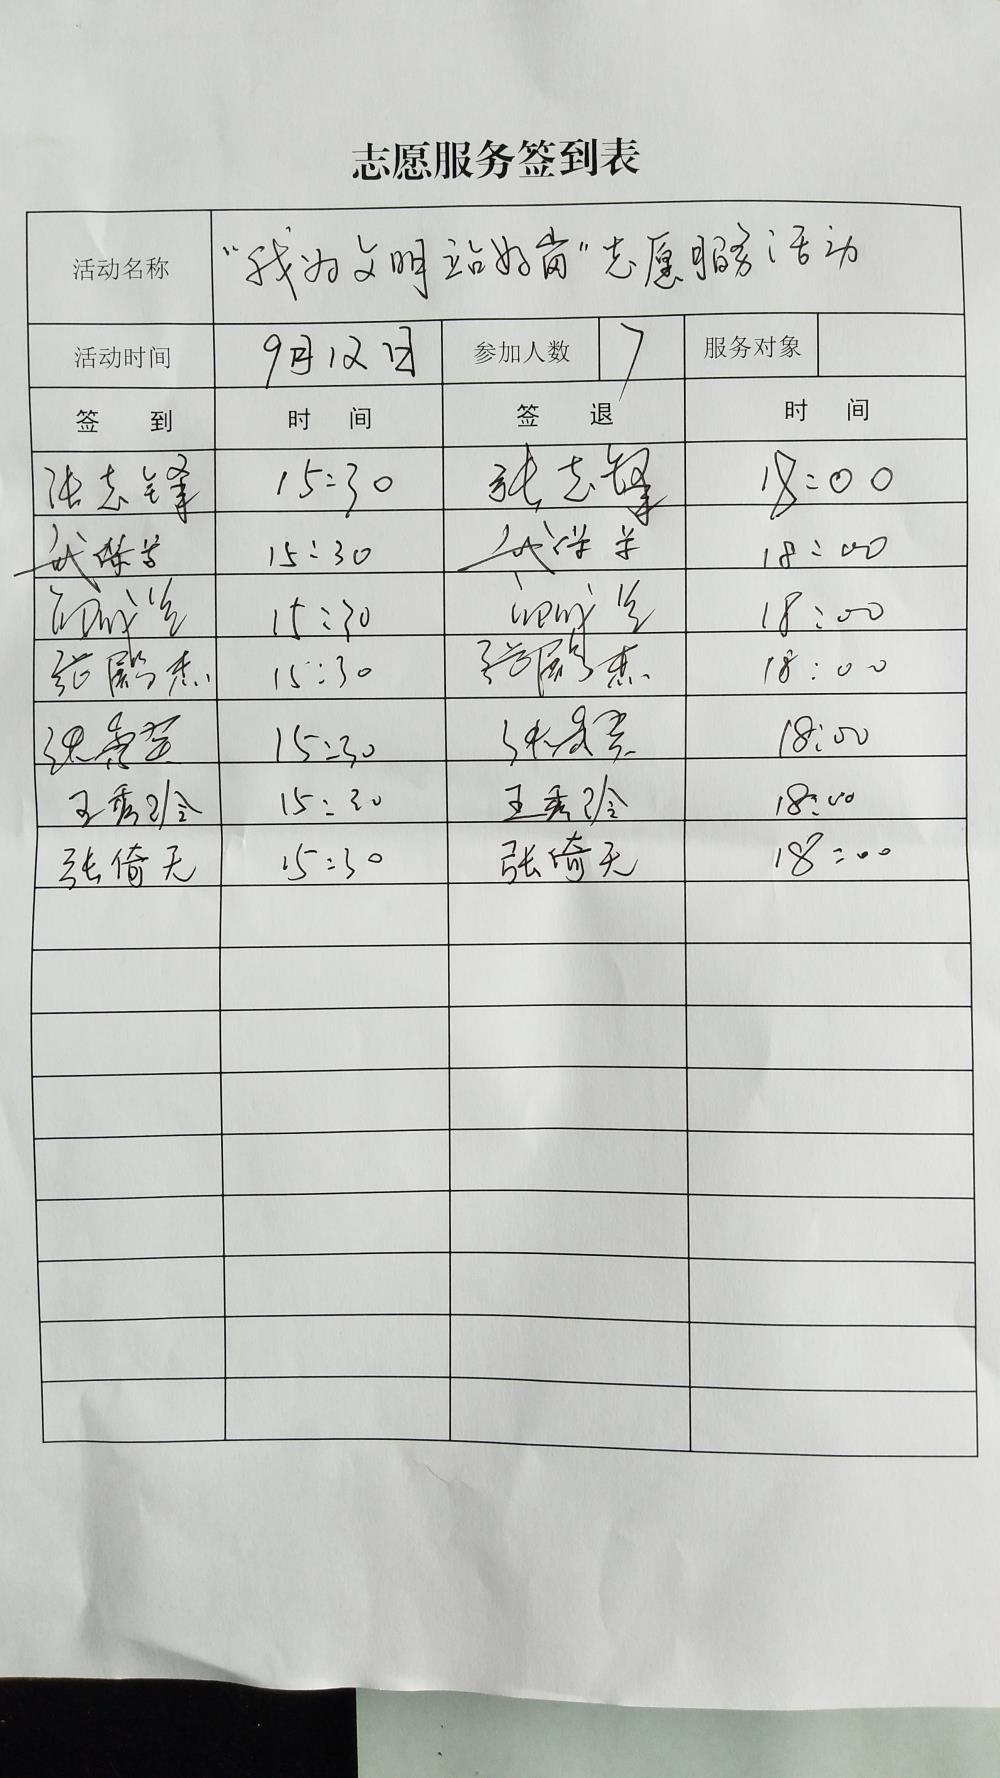 志愿服务签到表
活动名称 “我为文明站好岗”志愿服务活动
活动时间 9月12日 参加人数 7 服务对象
签到 时间 签退 时间
张志锋 15:30 张志锋 18:00
15:30 18:00
15:30 18:00
张 杰 15:30 张 杰 18:00
张 15:30 张 18:00
王秀玲 15:30 王秀玲 18:00
张倚天 15:30 张倚天 18:00